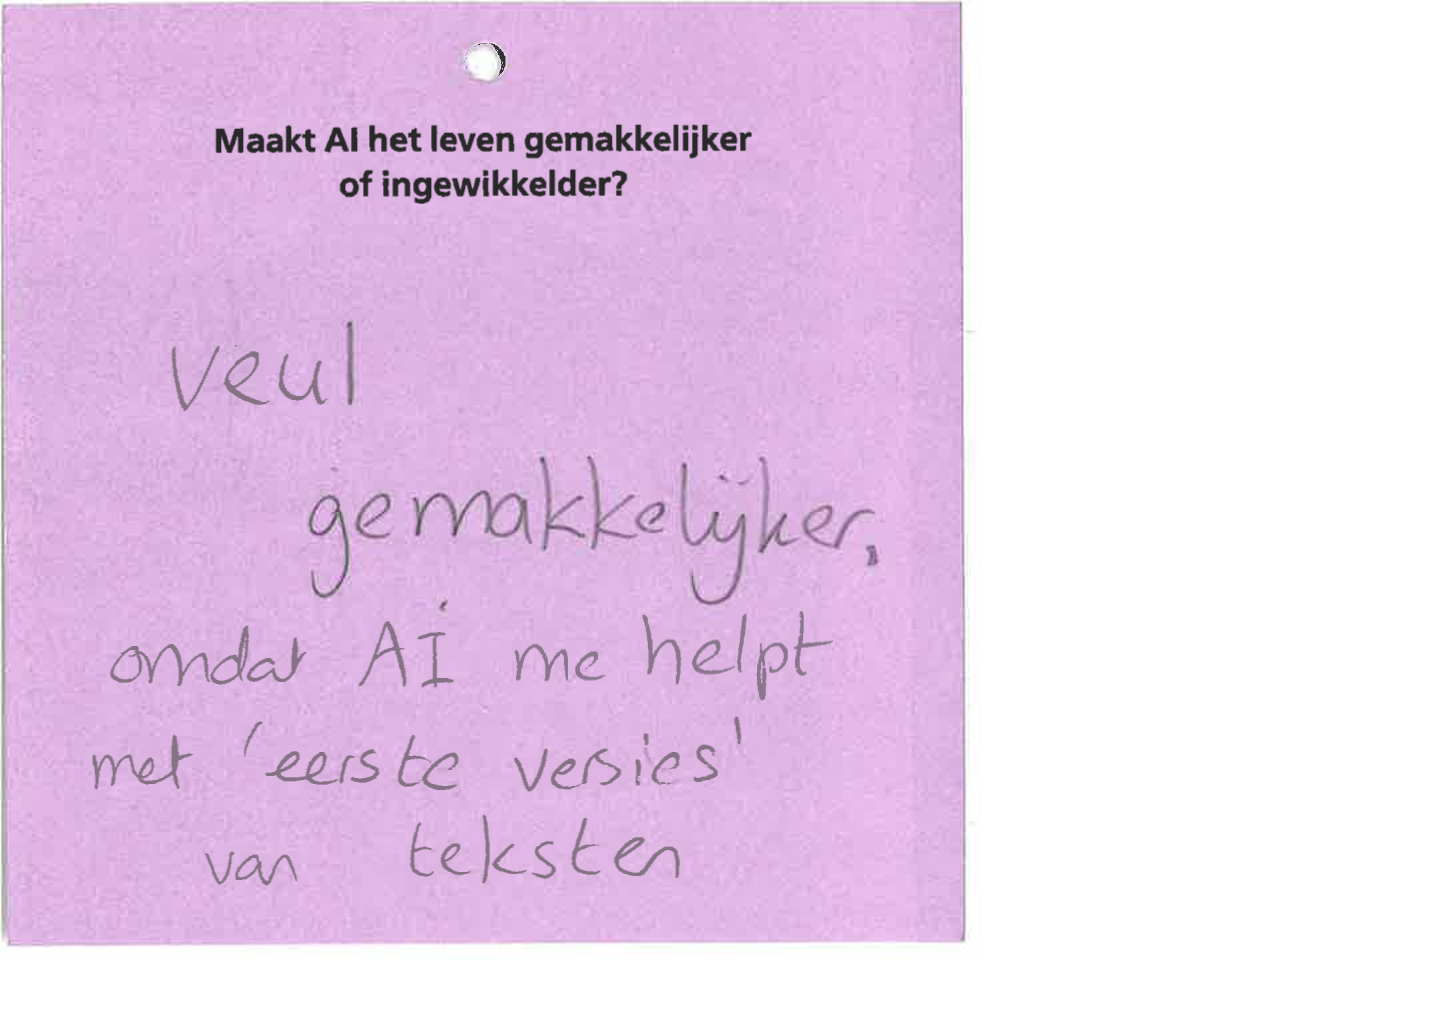 Maakt AI het leven gemakkelijker
of ingewikkelder?
veul
gemakkelijker,
omdat AI me helpt
met 'eerste versies'
van teksten